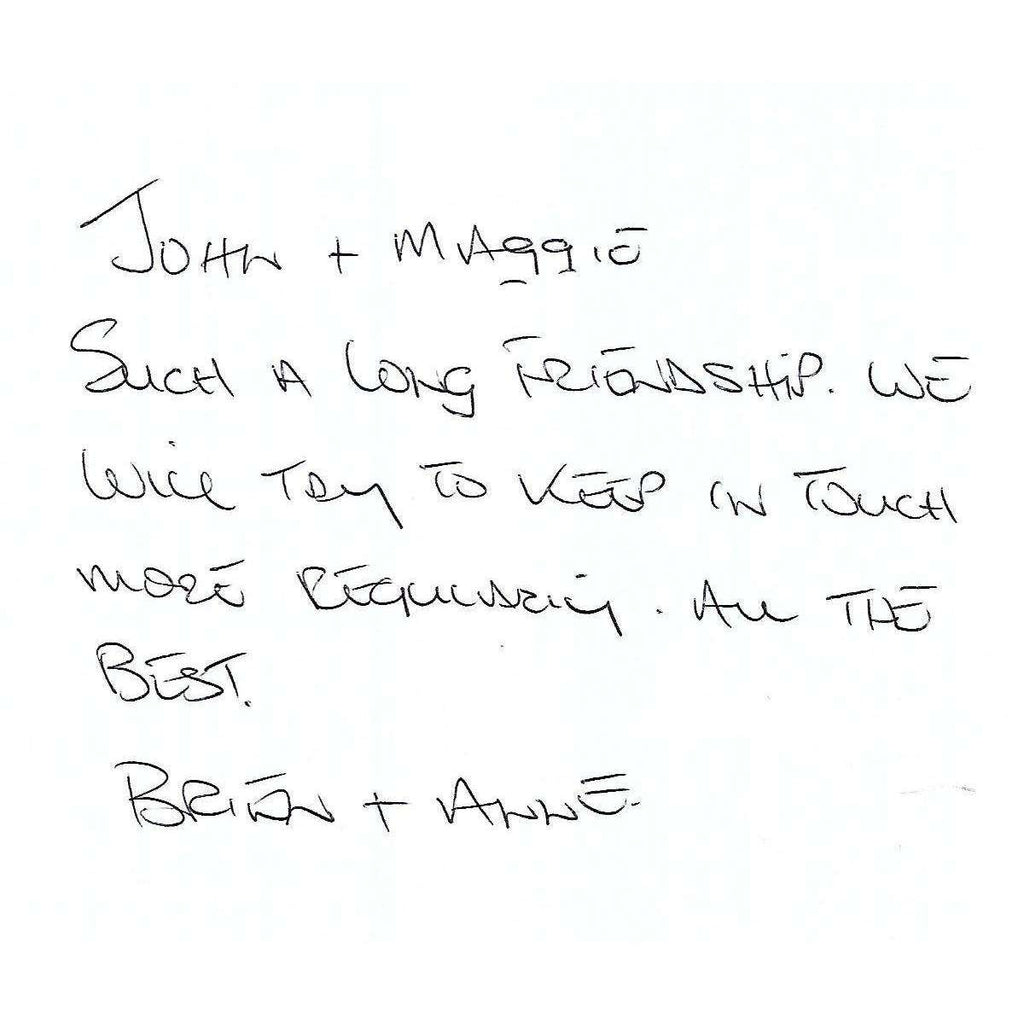 JOHN + MAGGIE
SUCH A LONG FRIENDSHIP. WE
WILL TRY TO KEEP IN TOUCH
MORE REGULARLY. ALL THE
BEST.
BRIEN + ANNE.